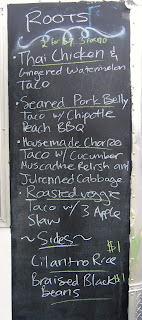 Roots
2 for $7 3 for $10
• Thai Chicken &
Gingered Watermelon
Taco
• Seared Pork Belly
Taco w/ Chipotle
Peach BBQ
• Housemade Chorizo
Taco w/ Cucumber
Muscadine Relish and
Julienned Cabbage
• Roasted veggie
Taco w/ 3 Apple
Slaw
~Sides~
Cilantro Rice $1
Braised Black $1
beans